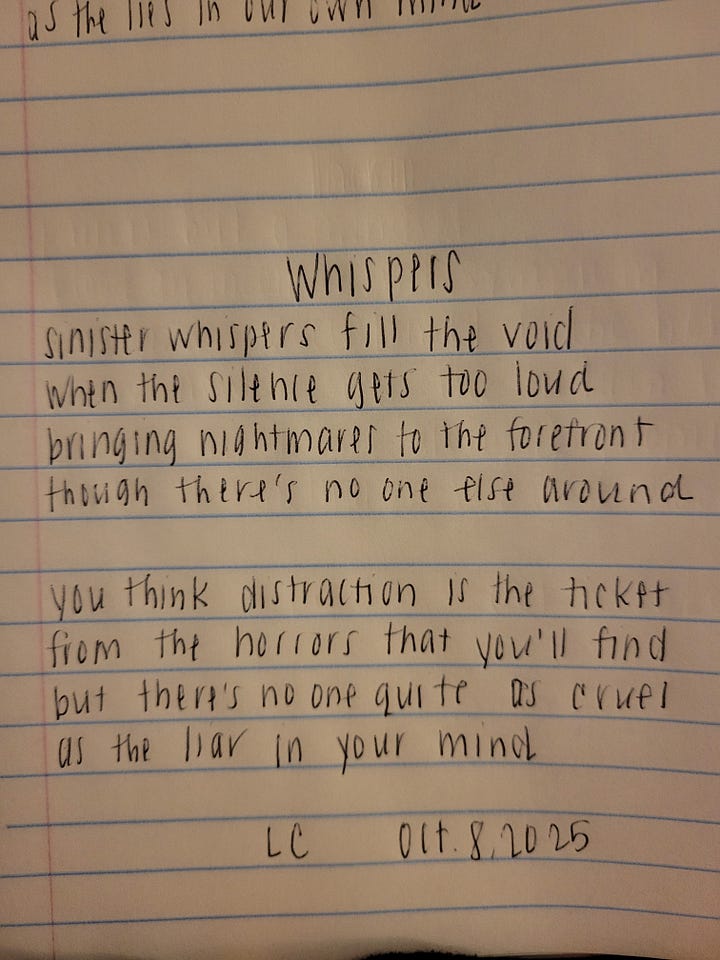 as the lies in our own mind
Whispers
sinister whispers fill the void
when the silence gets too loud
bringing nightmares to the forefront
though there's no one else around
you think distraction is the ticket
from the horrors that you'll find
but there's no one quite as cruel
as the liar in your mind
LC Oct. 8, 2025